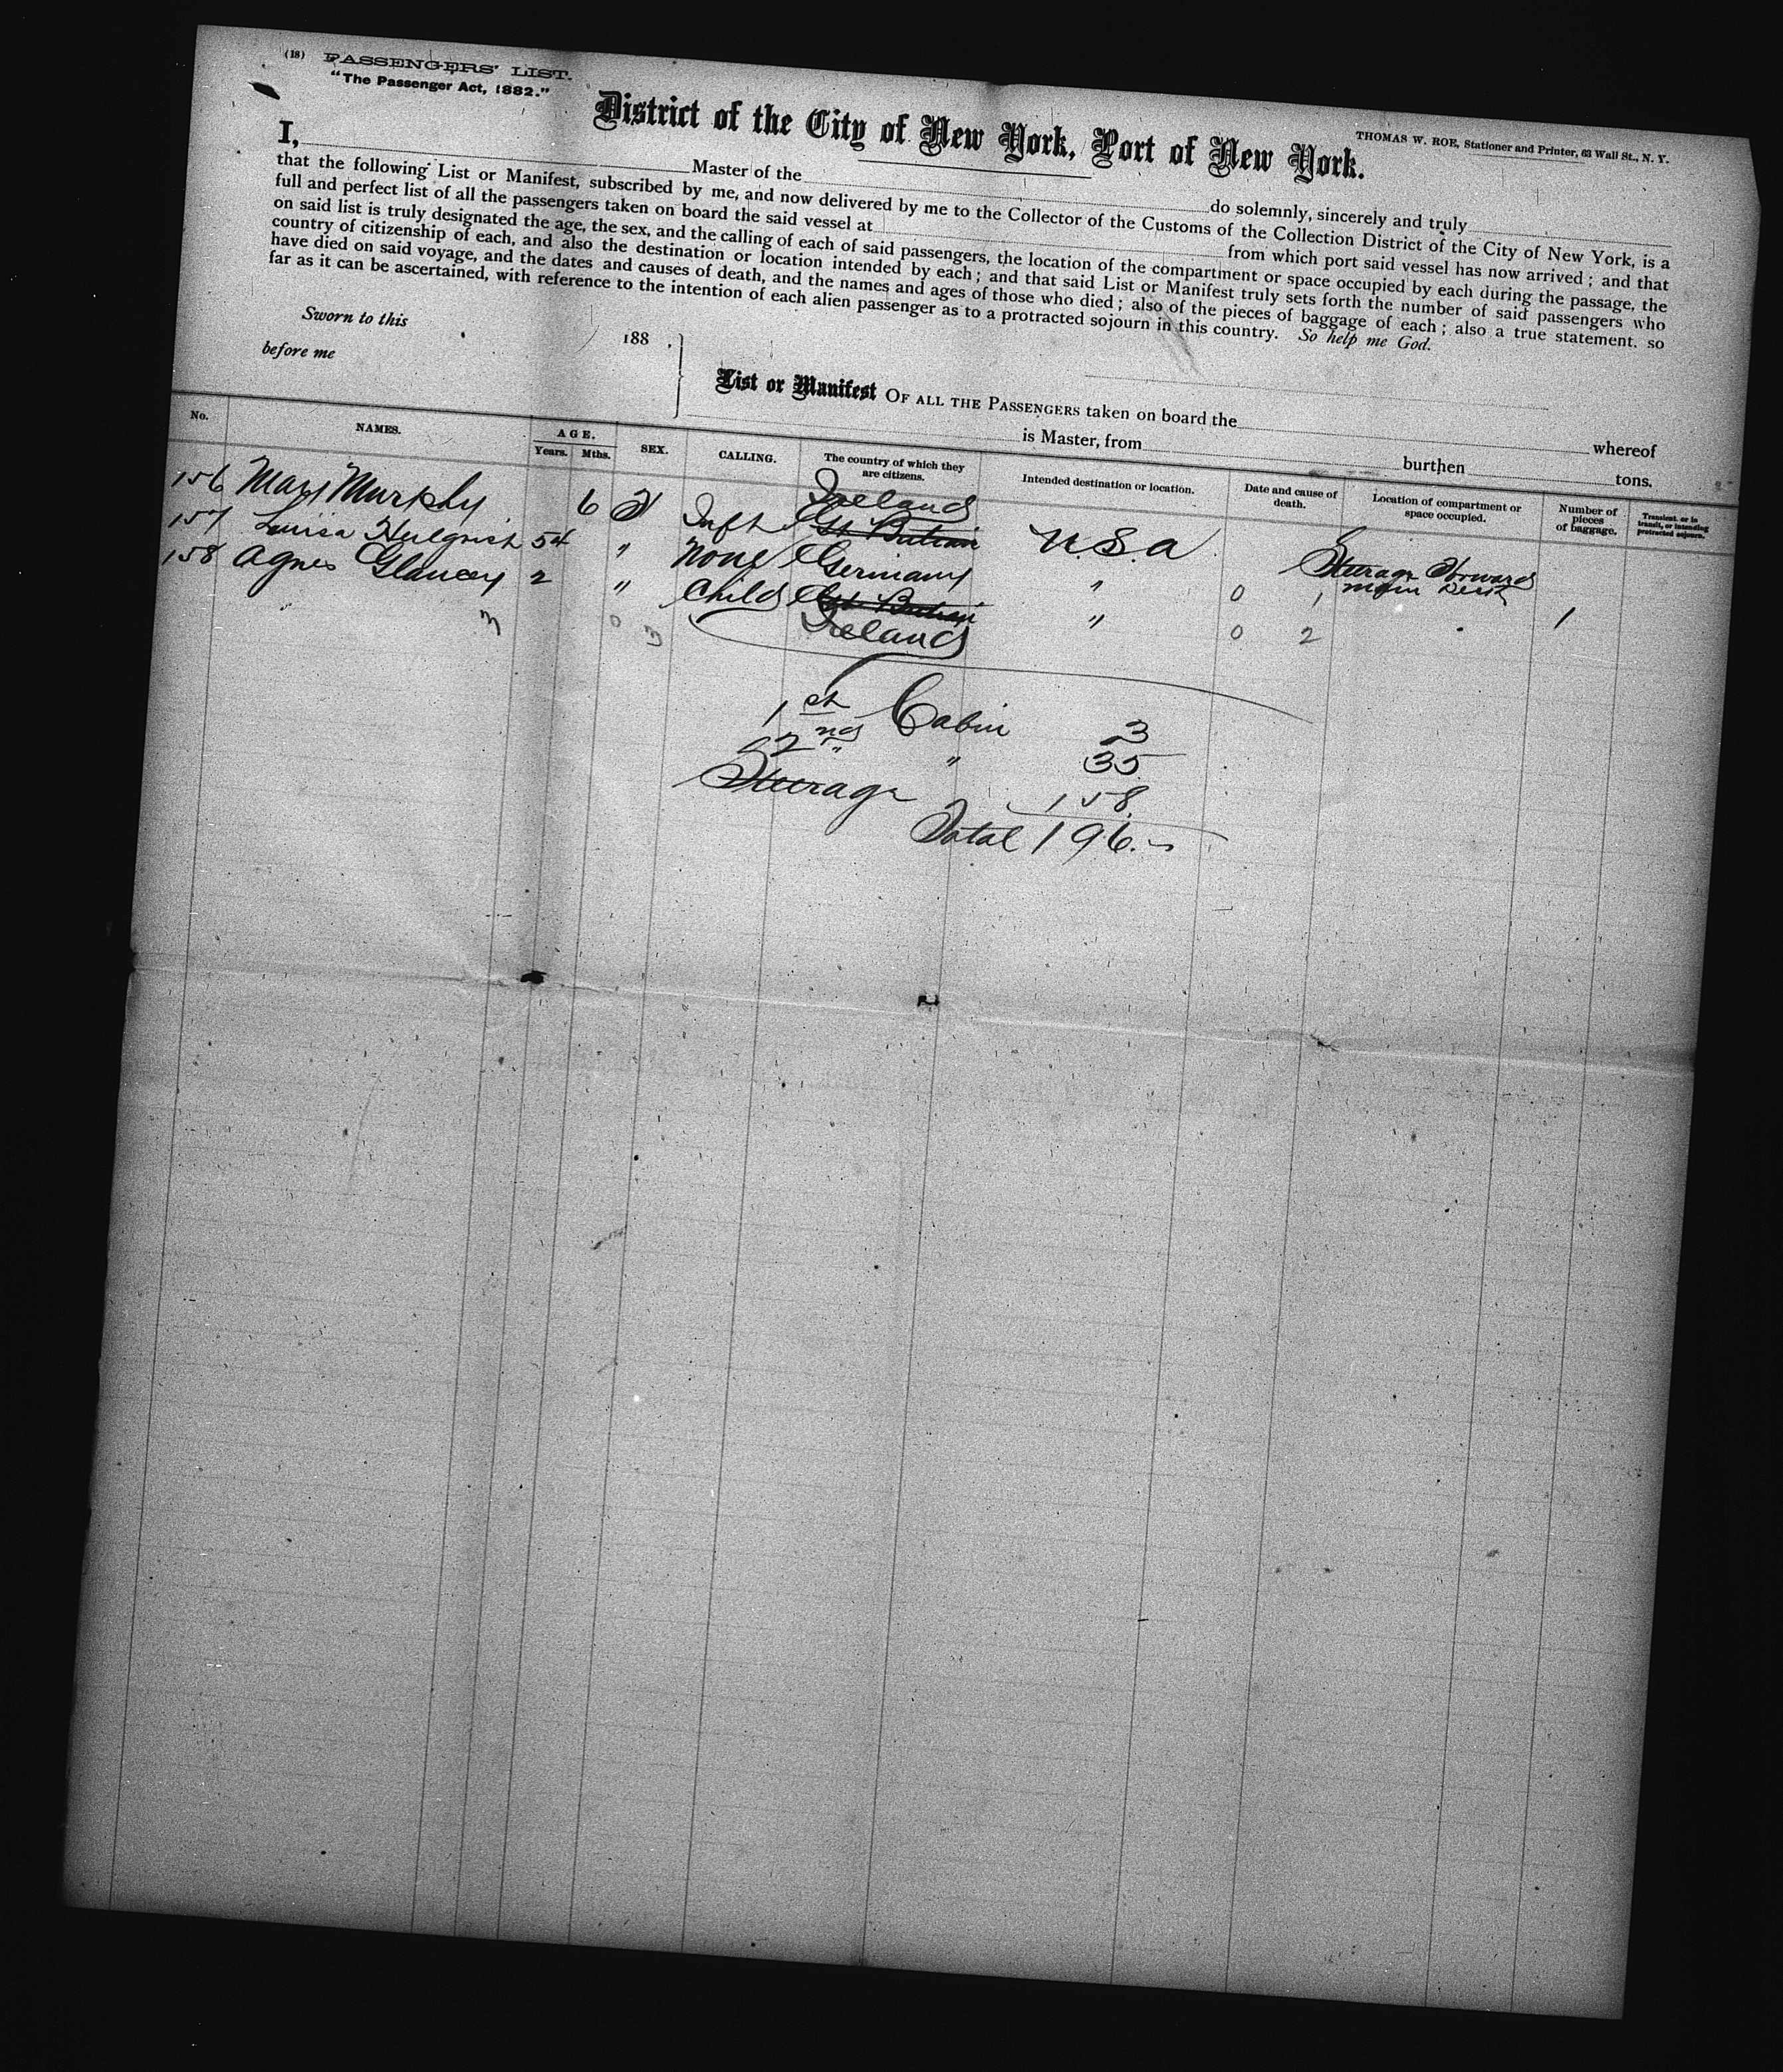 (18) PASSENGERS' LIST.
"The Passenger Act, 1882."
THOMAS W. ROE, Stationer and Printer, 63 Wall St., N. Y.
District of the City of New York, Port of New York.
I, Master of the do solemnly, sincerely and truly
that the following List or Manifest, subscribed by me, and now delivered by me to the Collector of the Customs of the Collection District of the City of New York, is a
full and perfect list of all the passengers taken on board the said vessel at from which port said vessel has now arrived; and that
on said list is truly designated the age, the sex, and the calling of each of said passengers, the location of the compartment or space occupied by each during the passage, the
country of citizenship of each, and also the destination or location intended by each; and that said List or Manifest truly sets forth the number of said passengers who
have died on said voyage, and the dates and causes of death, and the names and ages of those who died; also of the pieces of baggage of each; also a true statement. so
far as it can be ascertained, with reference to the intention of each alien passenger as to a protracted sojourn in this country. So help me God.
Sworn to this 188 .
before me
List or Manifest OF ALL THE PASSENGERS taken on board the whereof
is Master, from burthen tons.
No. NAMES. AGE. Years. Mths. SEX. CALLING. The country of which they are citizens. Intended destination or location. Date and cause of death. Location of compartment or space occupied. Number of pieces of baggage. Transient, or in transit, or intending protracted sojourn.
Ireland
156 Mary Murphy 6 F Inft Gt Britain U.S.a Steerage Forward
157 Luisa 54 " None Germany " 0 1 Main Deck 1
158 Agnes Glancey 2 " Child Gt Britain " 0 2
Ireland
3 0 3
1st Cabin 3
2nd " 35
Steerage 158
Total 196.